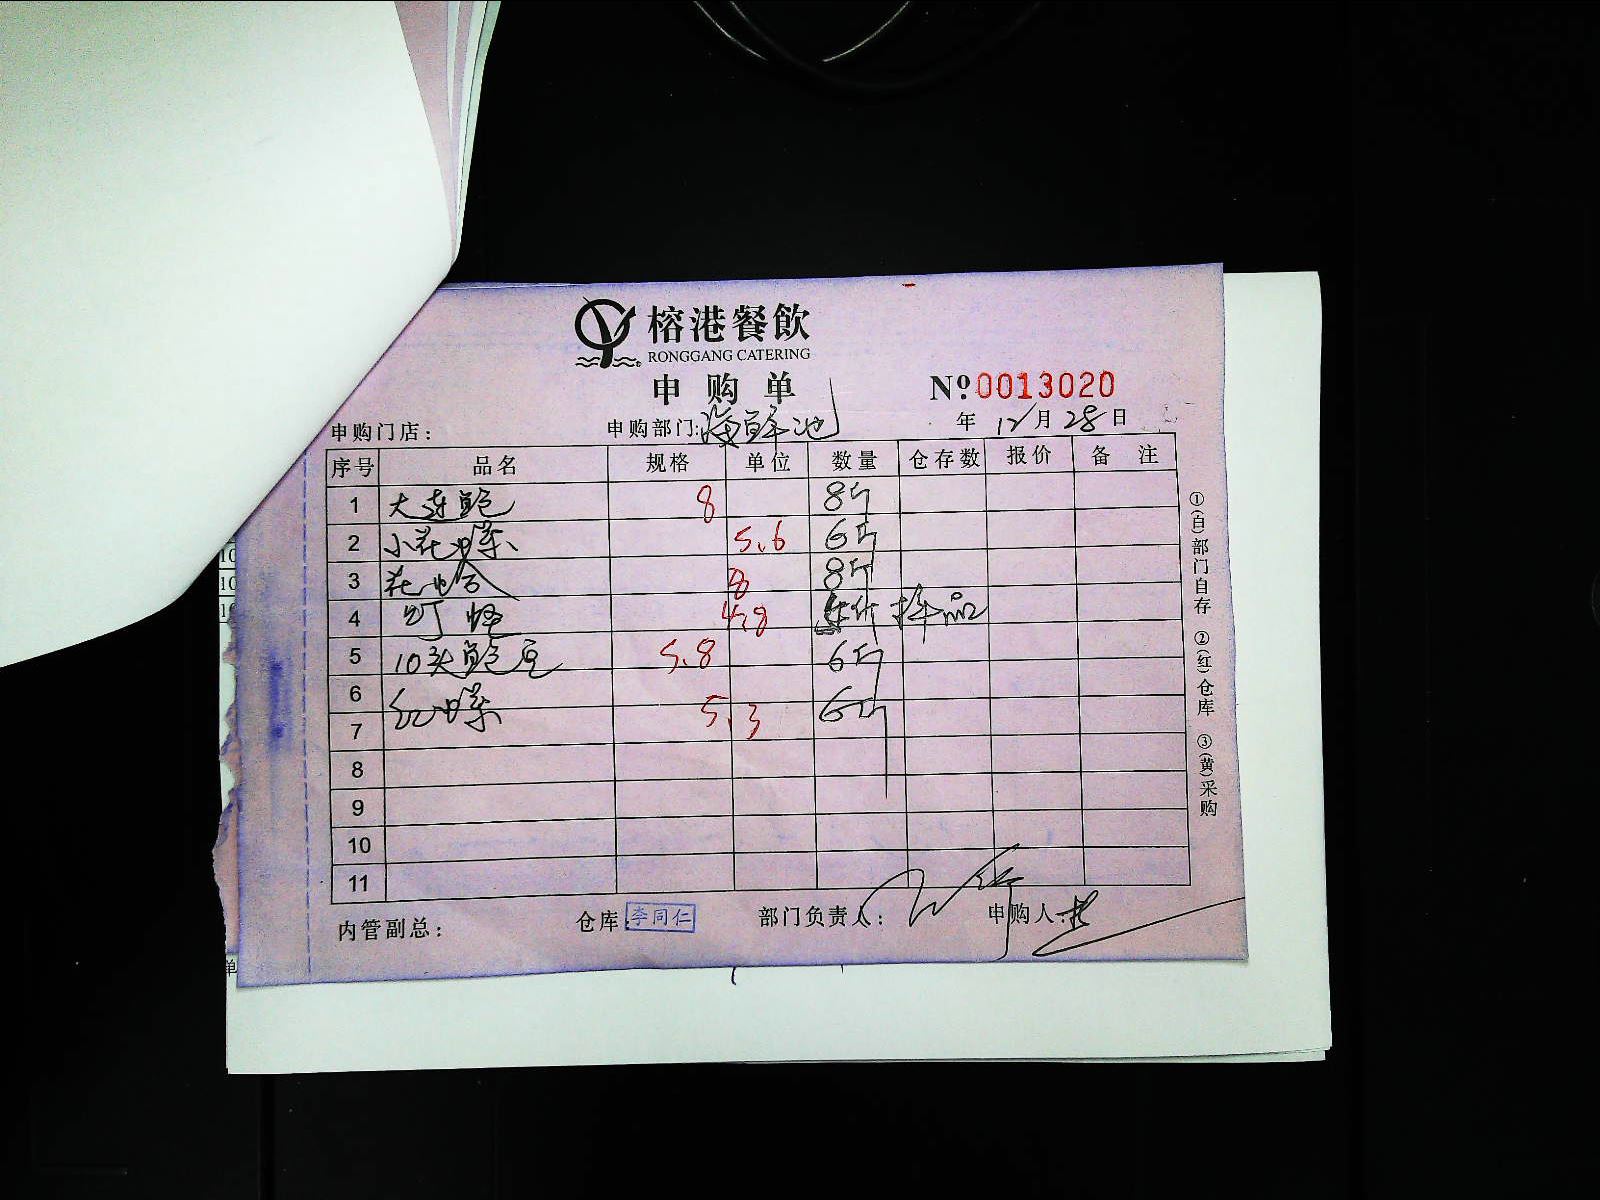 榕港餐飲
RONGGANG CATERING
申购单
№0013020
申购门店： 申购部门:海鲜池 年 12月28日
序号 品名 规格 单位 数量 仓存数 报价 备注
1 大连鲍 8 8斤
2 小花螺 5.6 6斤
3 花蛤 8 8斤
4 4.8 样品
5 10头鲍 5.8 6斤
6 红螺 5.3 6斤
7
8
9
10
11
内管副总： 仓库:李同仁 部门负责人： 申购人:
①(白)部门自存 ②(红)仓库 ③(黄)采购
10
10
单